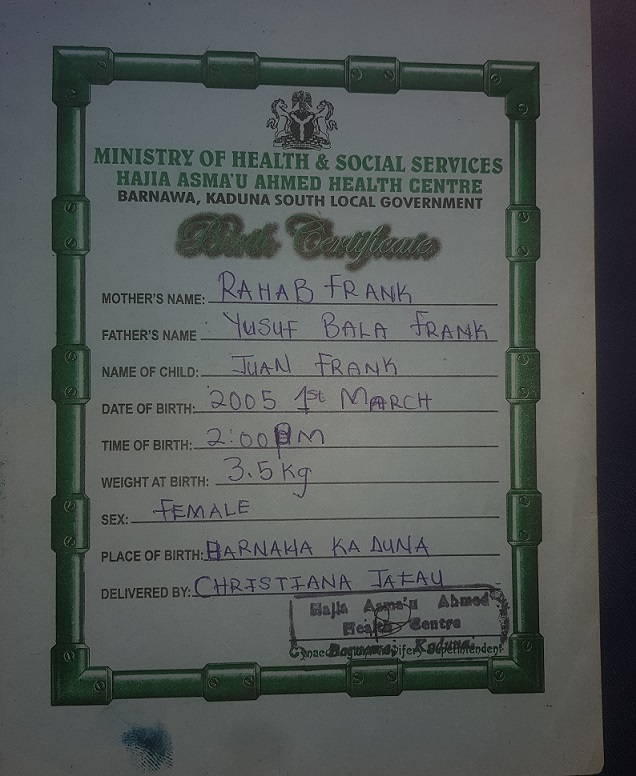 MINISTRY OF HEALTH & SOCIAL SERVICES
HAJIA ASMA'U AHMED HEALTH CENTRE
BARNAWA, KADUNA SOUTH LOCAL GOVERNMENT
Birth Certificate
MOTHER'S NAME: RAHAB FRANK
FATHER'S NAME YUSUF BALA FRANK
NAME OF CHILD: JUAN FRANK
DATE OF BIRTH: 2005 1st MARCH
TIME OF BIRTH: 2:00PM
WEIGHT AT BIRTH: 3.5kg
SEX: FEMALE
PLACE OF BIRTH: BARNAWA KADUNA
DELIVERED BY: CHRISTIANA JATAU
Hajia Asma'u Ahmed
Health Centre
Barnawa, Kaduna.
Superintendent